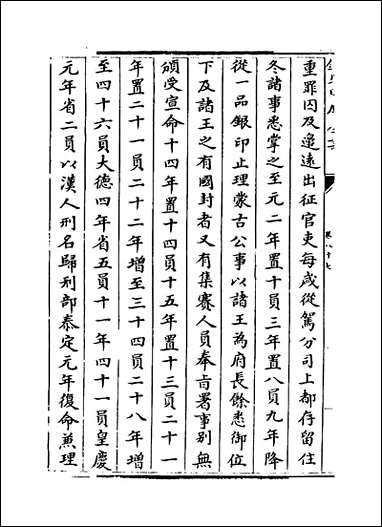 重罪囚及邉遠出征官吏每歳從駕分司上都存留住
冬諸事悉掌之至元二年置十員三年置八員九年降
從一品銀印止理蒙古公事以諸王為府長餘悉御位
下及諸王之有國封者又有集賽人員奉㫖署事别無
頒受宣命十四年置十四員十五年置十三員二十一
年置二十一員二十二年增至三十四員二十八年增
至四十六員大德四年省五員十一年四十一員皇慶
元年省二員以漢人刑名歸刑部泰定元年復命兼理
卷八十七